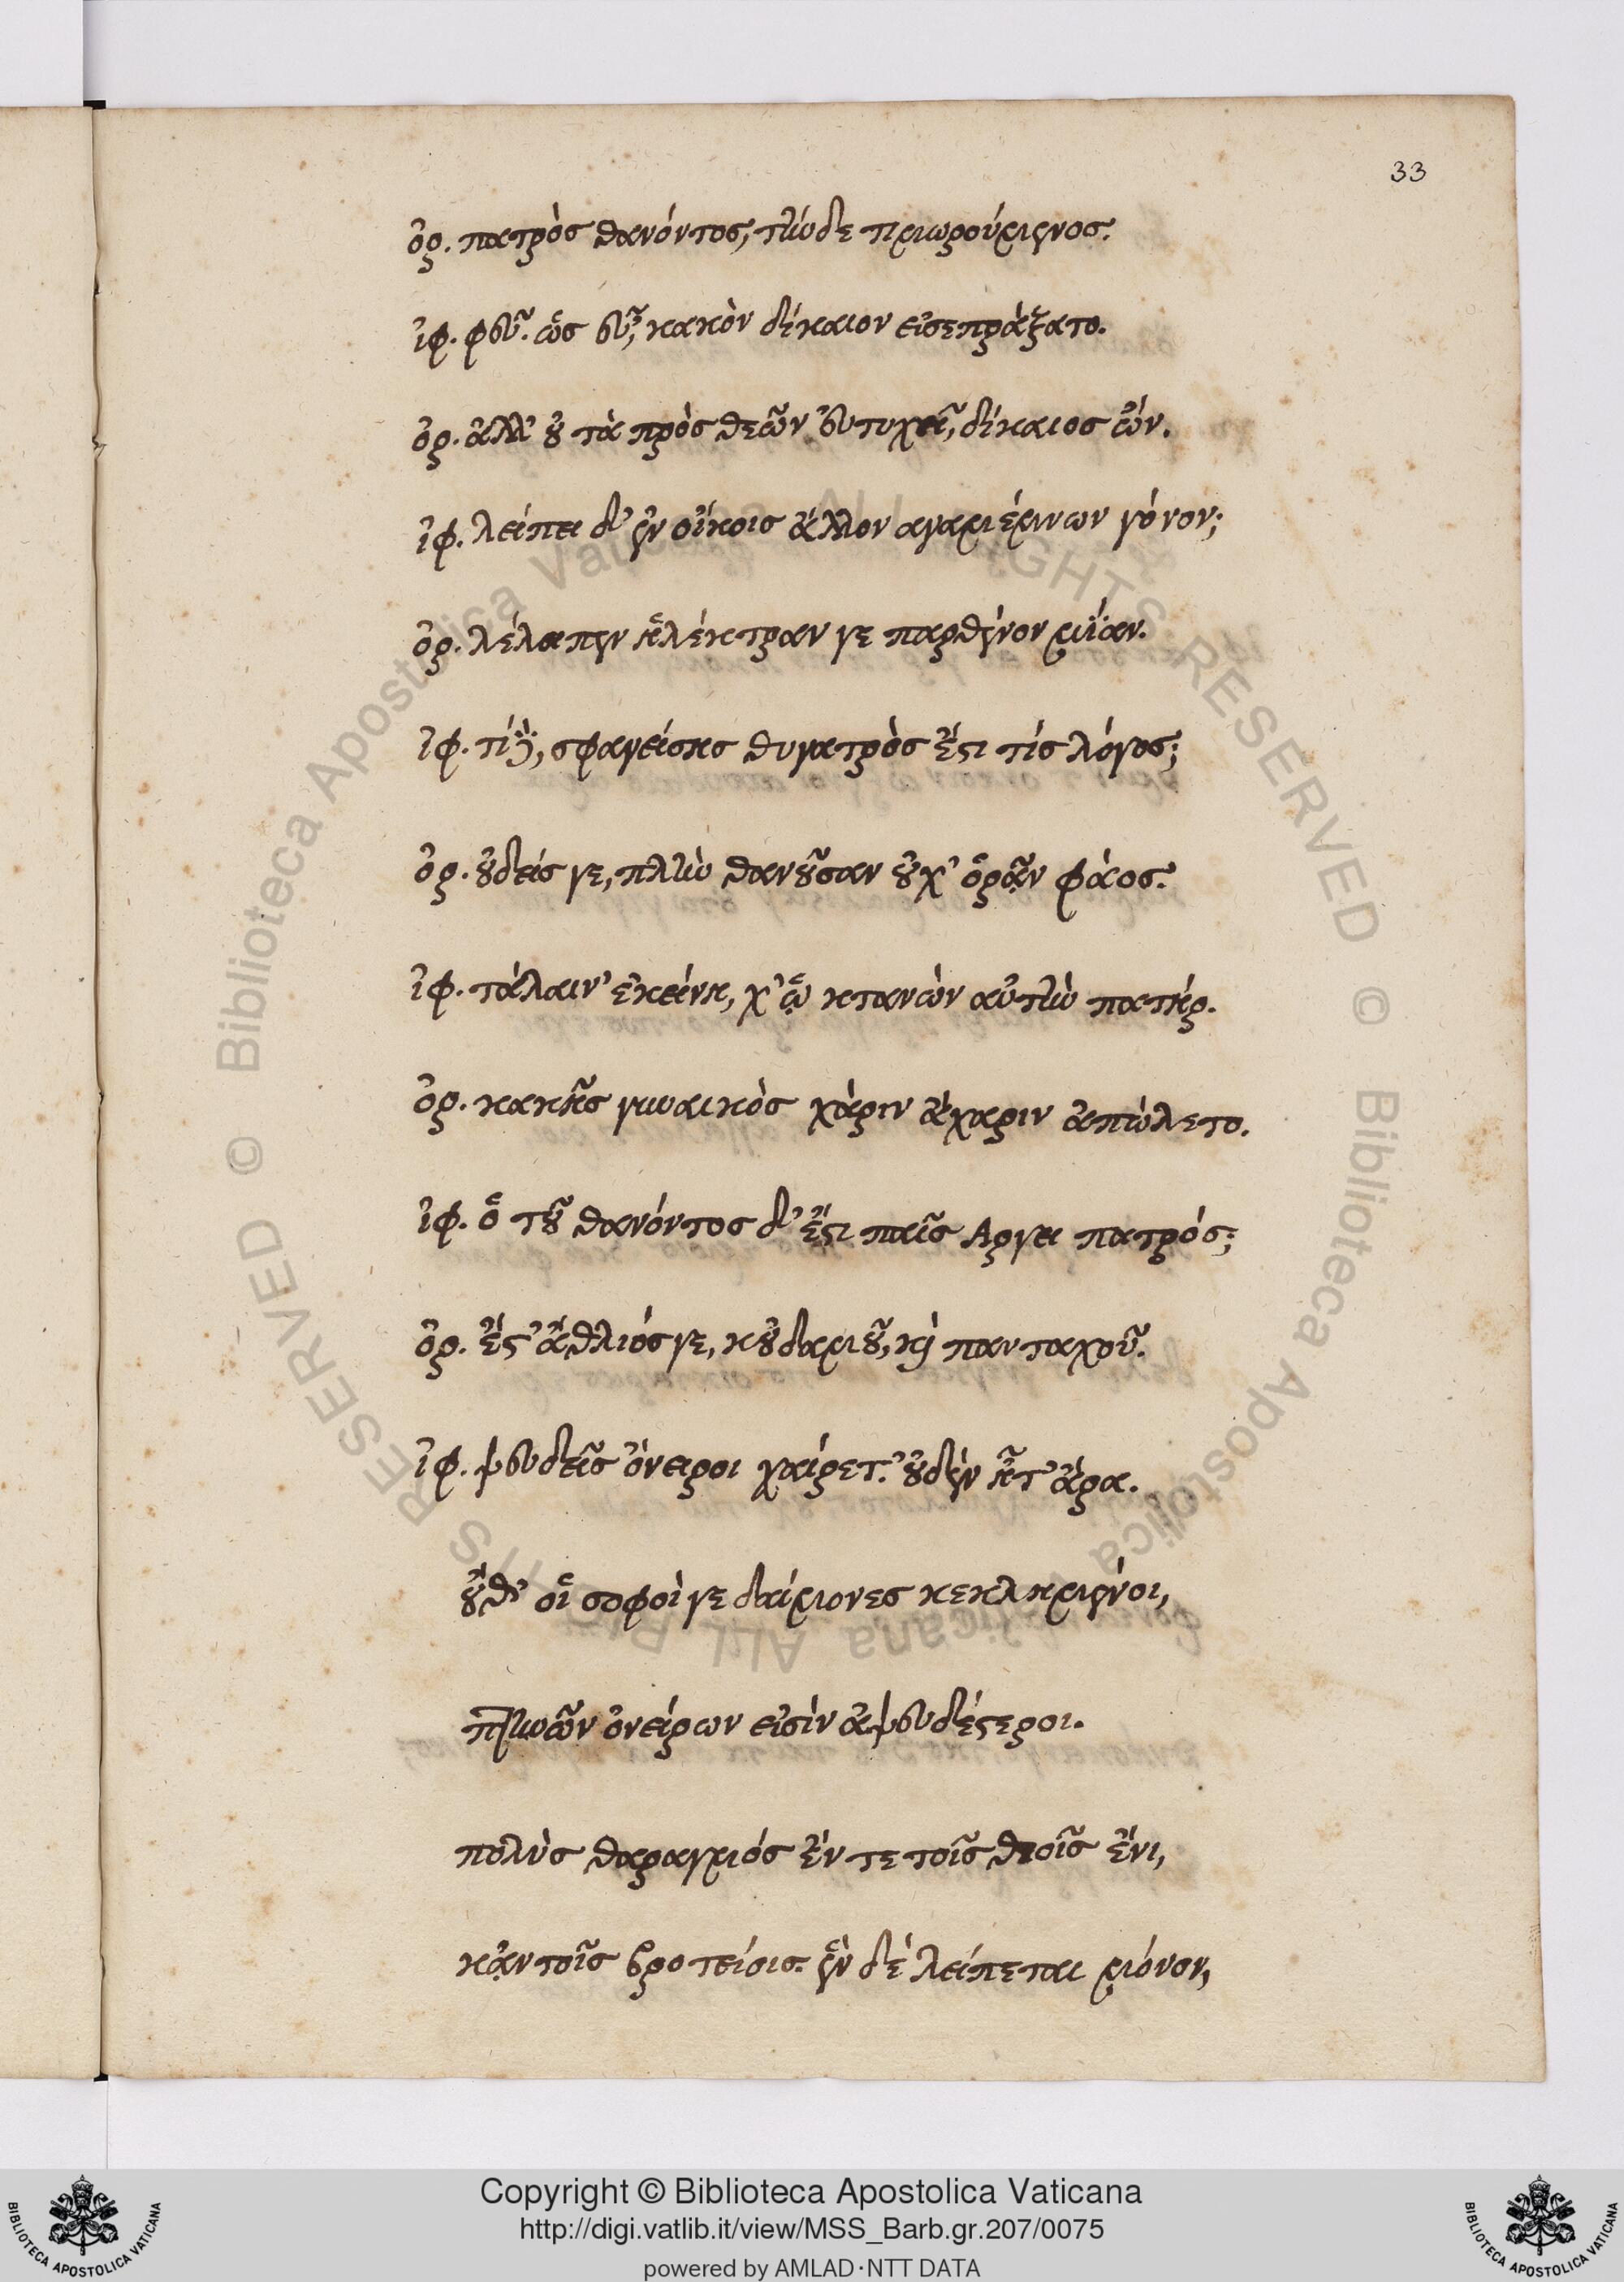 33
ὀρ. πατρὸς θανόντος, τήνδε τιμωρούμενος.
ἰφ. φεῦ. ὡς εὖ, κακὸν δίκαιον εἰσεπράξατο.
ὀρ. ἀλλ' οὐ τὰ πρὸς θεῶν εὐτυχεῖ, δίκαιος ὤν.
ἰφ. λείπει δ' ἐν οἴκοις ἄλλον αγαμέμνων γόνον;
ὀρ. λέλοιπεν ἠλέκτραν γε παρθένον μίαν.
ἰφ. τί δὲ, σφαγείσης θυγατρὸς ἔστι τίς λόγος;
ὀρ. οὐδείς γε, πλὴν θανοῦσαν οὐχ' ὁρᾷν φάος.
ἰφ. τάλαιν' ἐκείνη, χ' ᾧ κτανὼν αὐτὴν πατήρ.
ὀρ. κακῆς γυναικὸς χάριν ἄχαριν ἀπώλετο.
ἰφ. ὁ τοῦ θανόντος δ' ἔστι παῖς Αργει πατρός;
ὀρ. ἔστ' ἄθλιός γε, κοὐδαμοῦ, καὶ πανταχοῦ.
ἰφ. ψευδεῖς ὄνειροι χαίρετ'. οὐδὲν ἦτ' ἄρα.
οὔθ' οἱ σοφοὶ γε δαίμονες κεκλημένοι,
πτηνῶν ὀνείρων εἰσὶν ἀψευδέστεροι.
πολὺς θαραγμός ἔν τε τοῖς θεοῖς ἔνι,
κᾀν τοῖς βροτείοις. ἓν δὲ λείπεται μόνον,
Copyright © Biblioteca Apostolica Vaticana
http://digi.vatlib.it/view/MSS_Barb.gr.207/0075
powered by AMLAD·NTT DATA
BIBLIOTECA APOSTOLICA VATICANA
BIBLIOTECA APOSTOLICA VATICANA
© Biblioteca Apostolica Vaticana ALL RIGHTS RESERVED © Biblioteca Apostolica Vaticana ALL RIGHTS RESERVED